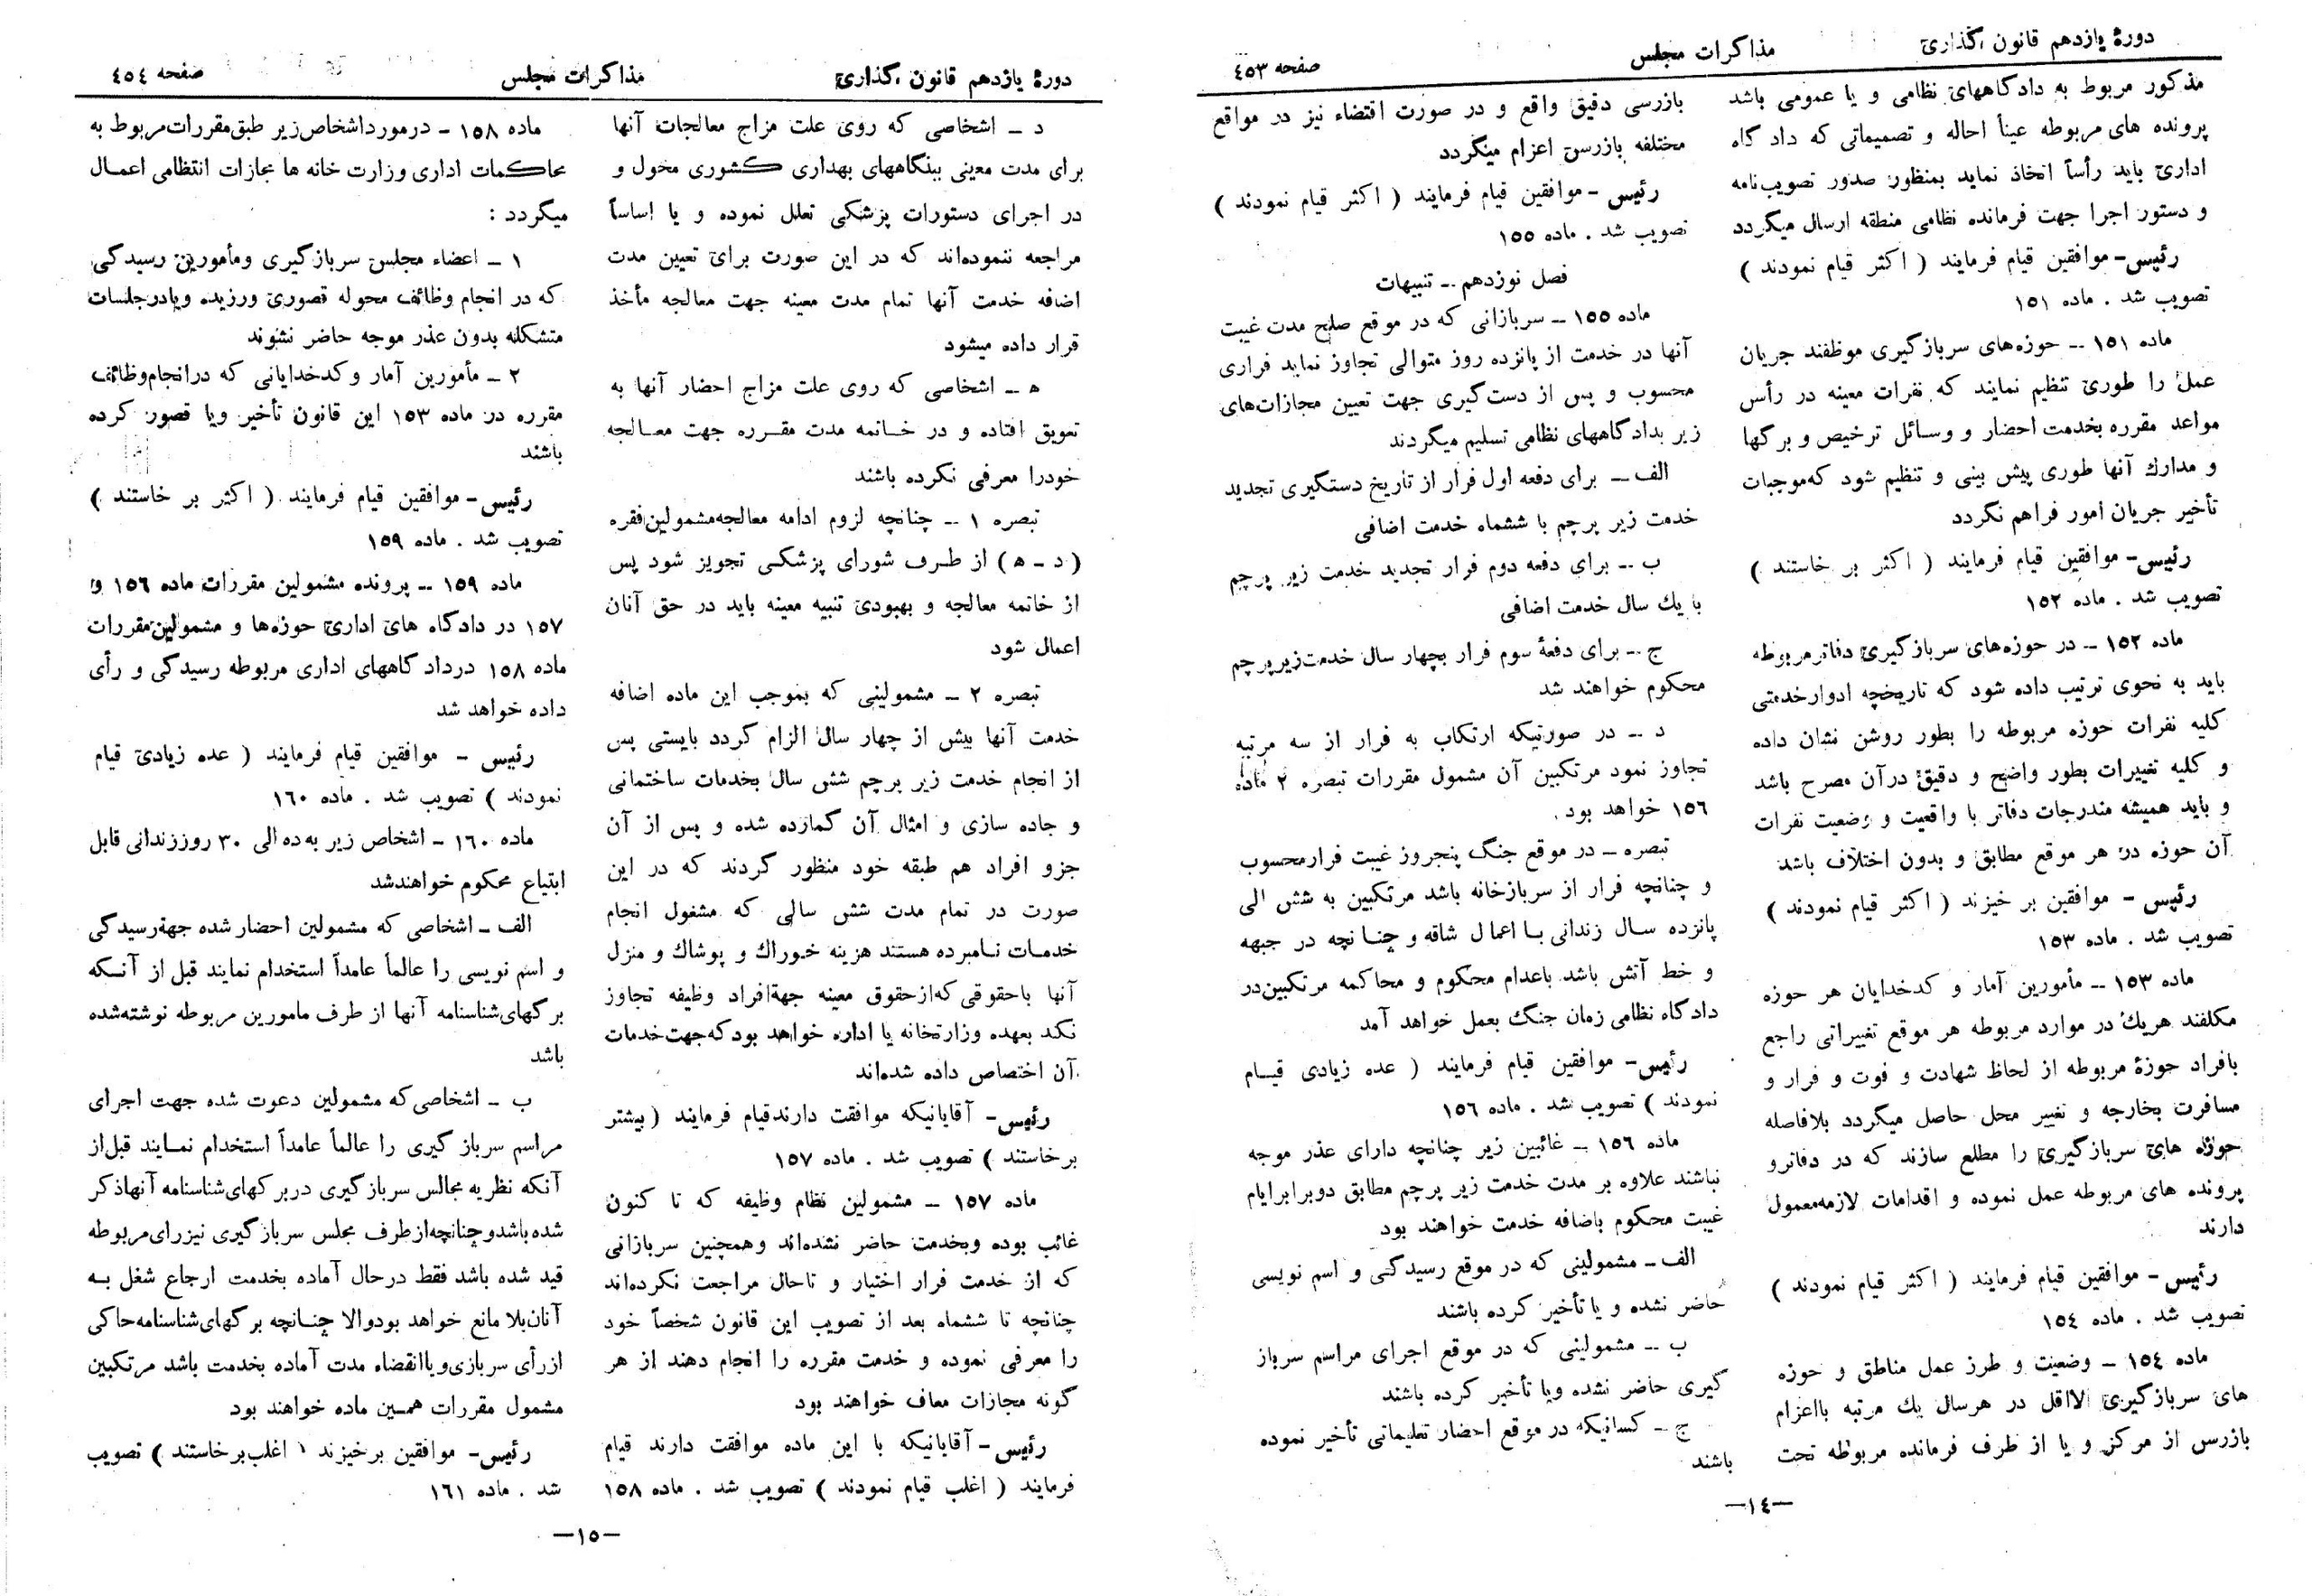 دورهٔ یازدهم قانون گذاری
مذاکرات مجلس
صفحه ٤٥٣
مذکور مربوط به دادگاههای نظامی و یا عمومی باشد
پرونده های مربوطه عیناً احاله و تصمیماتی که داد گاه
اداری باید رأساً اتخاذ نماید بمنظور صدور تصویب‌نامه
و دستور اجرا جهت فرمانده نظامی منطقه ارسال میگردد
رئیس- موافقین قیام فرمایند ( اکثر قیام نمودند )
تصویب شد . ماده ١٥١
ماده ١٥١ – حوزه‌های سربازگیری موظفند جریان
عمل را طوری تنظیم نمایند که نفرات معینه در رأس
مواعد مقرره بخدمت احضار و وسائل ترخیص و برگها
و مدارك آنها طوری پیش بینی و تنظیم شود که‌موجبات
تأخیر جریان امور فراهم نگردد
رئیس- موافقین قیام فرمایند ( اکثر بر خاستند )
تصویب شد . ماده ١٥٢
ماده ١٥٢ – در حوزه‌های سربازگیری دفاترمربوطه
باید به نحوی ترتیب داده شود که تاریخچه ادوارخدمتی
کلیه نفرات حوزه مربوطه را بطور روشن نشان داده
و کلیه تغییرات بطور واضح و دقیق درآن مصرح باشد
و باید همیشه مندرجات دفاتر با واقعیت و وضعیت نفرات
آن حوزه در هر موقع مطابق و بدون اختلاف باشد
رئیس - موافقین بر خیزند ( اکثر قیام نمودند )
تصویب شد . ماده ١٥٣
ماده ١٥٣ – مأمورین آمار و کدخدایان هر حوزه
مکلفند هریك در موارد مربوطه هر موقع تغییراتی راجع
بافراد حوزهٔ مربوطه از لحاظ شهادت و فوت و فرار و
مسافرت بخارجه و تغییر محل حاصل میگردد بلافاصله
حوزه های سربازگیری را مطلع سازند که در دفاترو
پرونده های مربوطه عمل نموده و اقدامات لازمه‌معمول
دارند
رئیس - موافقین قیام فرمایند ( اکثر قیام نمودند )
تصویب شد . ماده ١٥٤
ماده ١٥٤ – وضعیت و طرز عمل مناطق و حوزه
های سربازگیری الااقل در هرسال یك مرتبه بااعزام
بازرس از مرکز و یا از طرف فرمانده مربوطه تحت
بازرسی دقیق واقع و در صورت اقتضاء نیز در مواقع
مختلفه بازرسی اعزام میگردد
رئیس - موافقین قیام فرمایند ( اکثر قیام نمودند )
تصویب شد . ماده ١٥٥
فصل نوزدهم – تنبیهات
ماده ١٥٥ – سربازانی که در موقع صلح مدت غیبت
آنها در خدمت از پانزده روز متوالی تجاوز نماید فراری
محسوب و پس از دست‌گیری جهت تعیین مجازات‌های
زیر بدادگاههای نظامی تسلیم میگردند
الف – برای دفعه اول فرار از تاریخ دستگیری تجدید
خدمت زیر پرچم با ششماه خدمت اضافی
ب – برای دفعه دوم فرار تجدید خدمت زیر پرچم
با یك سال خدمت اضافی
ج – برای دفعهٔ سوم فرار بچهار سال خدمت‌زیرپرچم
محکوم خواهند شد
د – در صورتیکه ارتکاب به فرار از سه مرتبه
تجاوز نمود مرتکبین آن مشمول مقررات تبصره ٢ ماده
١٥٦ خواهد بود .
تبصره – در موقع جنگ پنجروز غیبت فرارمحسوب
و چنانچه فرار از سربازخانه باشد مرتکبین به شش الی
پانزده سال زندانی با اعمال شاقه و چنانچه در جبهه
و خط آتش باشد باعدام محکوم و محاکمه مرتکبین‌در
دادگاه نظامی زمان جنگ بعمل خواهد آمد
رئیس- موافقین قیام فرمایند ( عده زیادی قیام
نمودند ) تصویب شد . ماده ١٥٦
ماده ١٥٦ – غائبین زیر چنانچه دارای عذر موجه
نباشند علاوه بر مدت خدمت زیر پرچم مطابق دوبرابرایام
غیبت محکوم باضافه خدمت خواهند بود
الف – مشمولینی که در موقع رسیدگی و اسم نویسی
حاضر نشده و یا تأخیر کرده باشند
ب – مشمولینی که در موقع اجرای مراسم سرباز
گیری حاضر نشده ویا تأخیر کرده باشند
ج – کسانیکه در موقع احضار تعلیماتی تأخیر نموده
باشند
—١٤—
دورهٔ یازدهم قانون گذاری
مذاکرات مجلس
صفحه ٤٥٤
د – اشخاصی که روی علت مزاج معالجات آنها
برای مدت معینی ببنگاههای بهداری کشوری محول و
در اجرای دستورات پزشکی تعلل نموده و یا اساساً
مراجعه ننموده‌اند که در این صورت برای تعیین مدت
اضافه خدمت آنها تمام مدت معینه جهت معالجه مأخذ
قرار داده میشود
ه – اشخاصی که روی علت مزاج احضار آنها به
تعویق افتاده و در خاتمه مدت مقرره جهت معالجه
خودرا معرفی نکرده باشند
تبصره ١ – چنانچه لزوم ادامه معالجه‌مشمولین‌فقره
( د - ه ) از طرف شورای پزشکی تجویز شود پس
از خاتمه معالجه و بهبودی تنبیه معینه باید در حق آنان
اعمال شود
تبصره ٢ – مشمولینی که بموجب این ماده اضافه
خدمت آنها بیش از چهار سال الزام گردد بایستی پس
از انجام خدمت زیر پرچم شش سال بخدمات ساختمانی
و جاده سازی و امثال آن گمارده شده و پس از آن
جزو افراد هم طبقه خود منظور گردند که در این
صورت در تمام مدت شش سالی که مشغول انجام
خدمات نامبرده هستند هزینه خوراك و پوشاك و منزل
آنها باحقوقی که‌ازحقوق معینه جهةافراد وظیفه تجاوز
نکد بعهده وزارتخانه یا اداره خواهد بودکه‌جهت‌خدمات
آن اختصاص داده شده‌اند
رئیس- آقایانیکه موافقت دارندقیام فرمایند ( بیشتر
برخاستند ) تصویب شد . ماده ١٥٧
ماده ١٥٧ – مشمولین نظام وظیفه که تا کنون
غائب بوده وبخدمت حاضر نشده‌اند وهمچنین سربازانی
که از خدمت فرار اختیار و تاحال مراجعت نکرده‌اند
چنانچه تا ششماه بعد از تصویب این قانون شخصاً خود
را معرفی نموده و خدمت مقرره را انجام دهند از هر
گونه مجازات معاف خواهند بود
رئیس- آقایانیکه با این ماده موافقت دارند قیام
فرمایند ( اغلب قیام نمودند ) تصویب شد . ماده ١٥٨
ماده ١٥٨ – درمورداشخاص‌زیر طبق‌مقررات‌مربوط به
محاکمات اداری وزارت خانه ها مجازات انتظامی اعمال
میگردد :
١ – اعضاء مجلس سربازگیری ومأمورین رسیدگی
که در انجام وظائف محوله قصوری ورزیده ویادرجلسات
متشکله بدون عذر موجه حاضر نشوند
٢ – مأمورین آمار وکدخدایانی که درانجام‌وظائف
مقرره در ماده ١٥٣ این قانون تأخیر ویا قصور کرده
باشند
رئیس- موافقین قیام فرمایند ( اکثر بر خاستند )
تصویب شد . ماده ١٥٩
ماده ١٥٩ – پرونده مشمولین مقررات ماده ١٥٦ و
١٥٧ در دادگاه های اداری حوزه‌ها و مشمولین‌مقررات
ماده ١٥٨ درداد گاههای اداری مربوطه رسیدگی و رأی
داده خواهد شد
رئیس - موافقین قیام فرمایند ( عده زیادی قیام
نمودند ) تصویب شد . ماده ١٦٠
ماده ١٦٠ – اشخاص زیر به‌ده الی ٣٠ روززندانی قابل
ابتیاع محکوم خواهندشد
الف – اشخاصی که مشمولین احضار شده جهةرسیدگی
و اسم نویسی را عالماً عامداً استخدام نمایند قبل از آنکه
برگهای‌شناسنامه آنها از طرف مامورین مربوطه نوشته‌شده
باشد
ب – اشخاصی‌که مشمولین دعوت شده جهت اجرای
مراسم سرباز گیری را عالماً عامداً استخدام نمایند قبل‌از
آنکه نظریه مجالس سربازگیری دربرگهای‌شناسنامه آنهاذکر
شده‌باشدوچنانچه‌ازطرف مجلس سربازگیری نیزرای‌مربوطه
قید شده باشد فقط درحال آماده بخدمت ارجاع شغل به
آنان‌بلا مانع خواهد بودوالا چنانچه برگهای‌شناسنامه‌حاکی
ازرأی سربازی‌ویاانقضاء مدت آماده بخدمت باشد مرتکبین
مشمول مقررات همین ماده خواهند بود
رئیس- موافقین برخیزند ( اغلب‌برخاستند ) تصویب
شد . ماده ١٦١
—١٥—